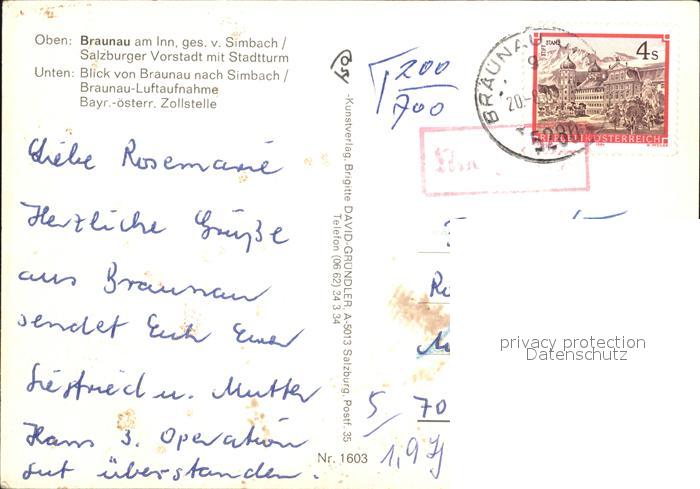 Oben: Braunau am Inn, ges. v. Simbach /
Salzburger Vorstadt mit Stadtturm
Unten: Blick von Braunau nach Simbach /
Braunau-Luftaufnahme
Bayr.-österr. Zollstelle
Liebe Rosemarie
Herzliche Grüße
aus Braunau
sendet Euch Euer
Siegfried u. Mutter
Hans 3. Operation
gut überstanden.
-Kunstverlag, Brigitte DAVID-GRÜNDLER, A-5013 Salzburg, Postf. 35
Telefon (06 62) 34 3 34
Nr. 1603
200
700
BRAUNAU
20.-8
5280
STIFT STAMS
4 S
REPUBLIK ÖSTERREICH
5/ 70
1,9
privacy protection
Datenschutz